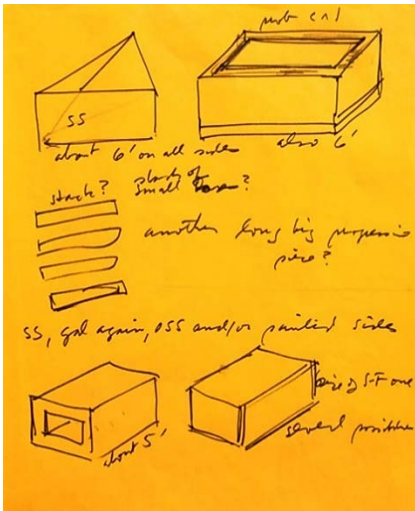 SS
about 6' on all sides
also 6'
stack?
stack of
small ?
another long big progression
piece?
SS, gal again, PSS and/or painted sides
about 5'
size of S-F one
several